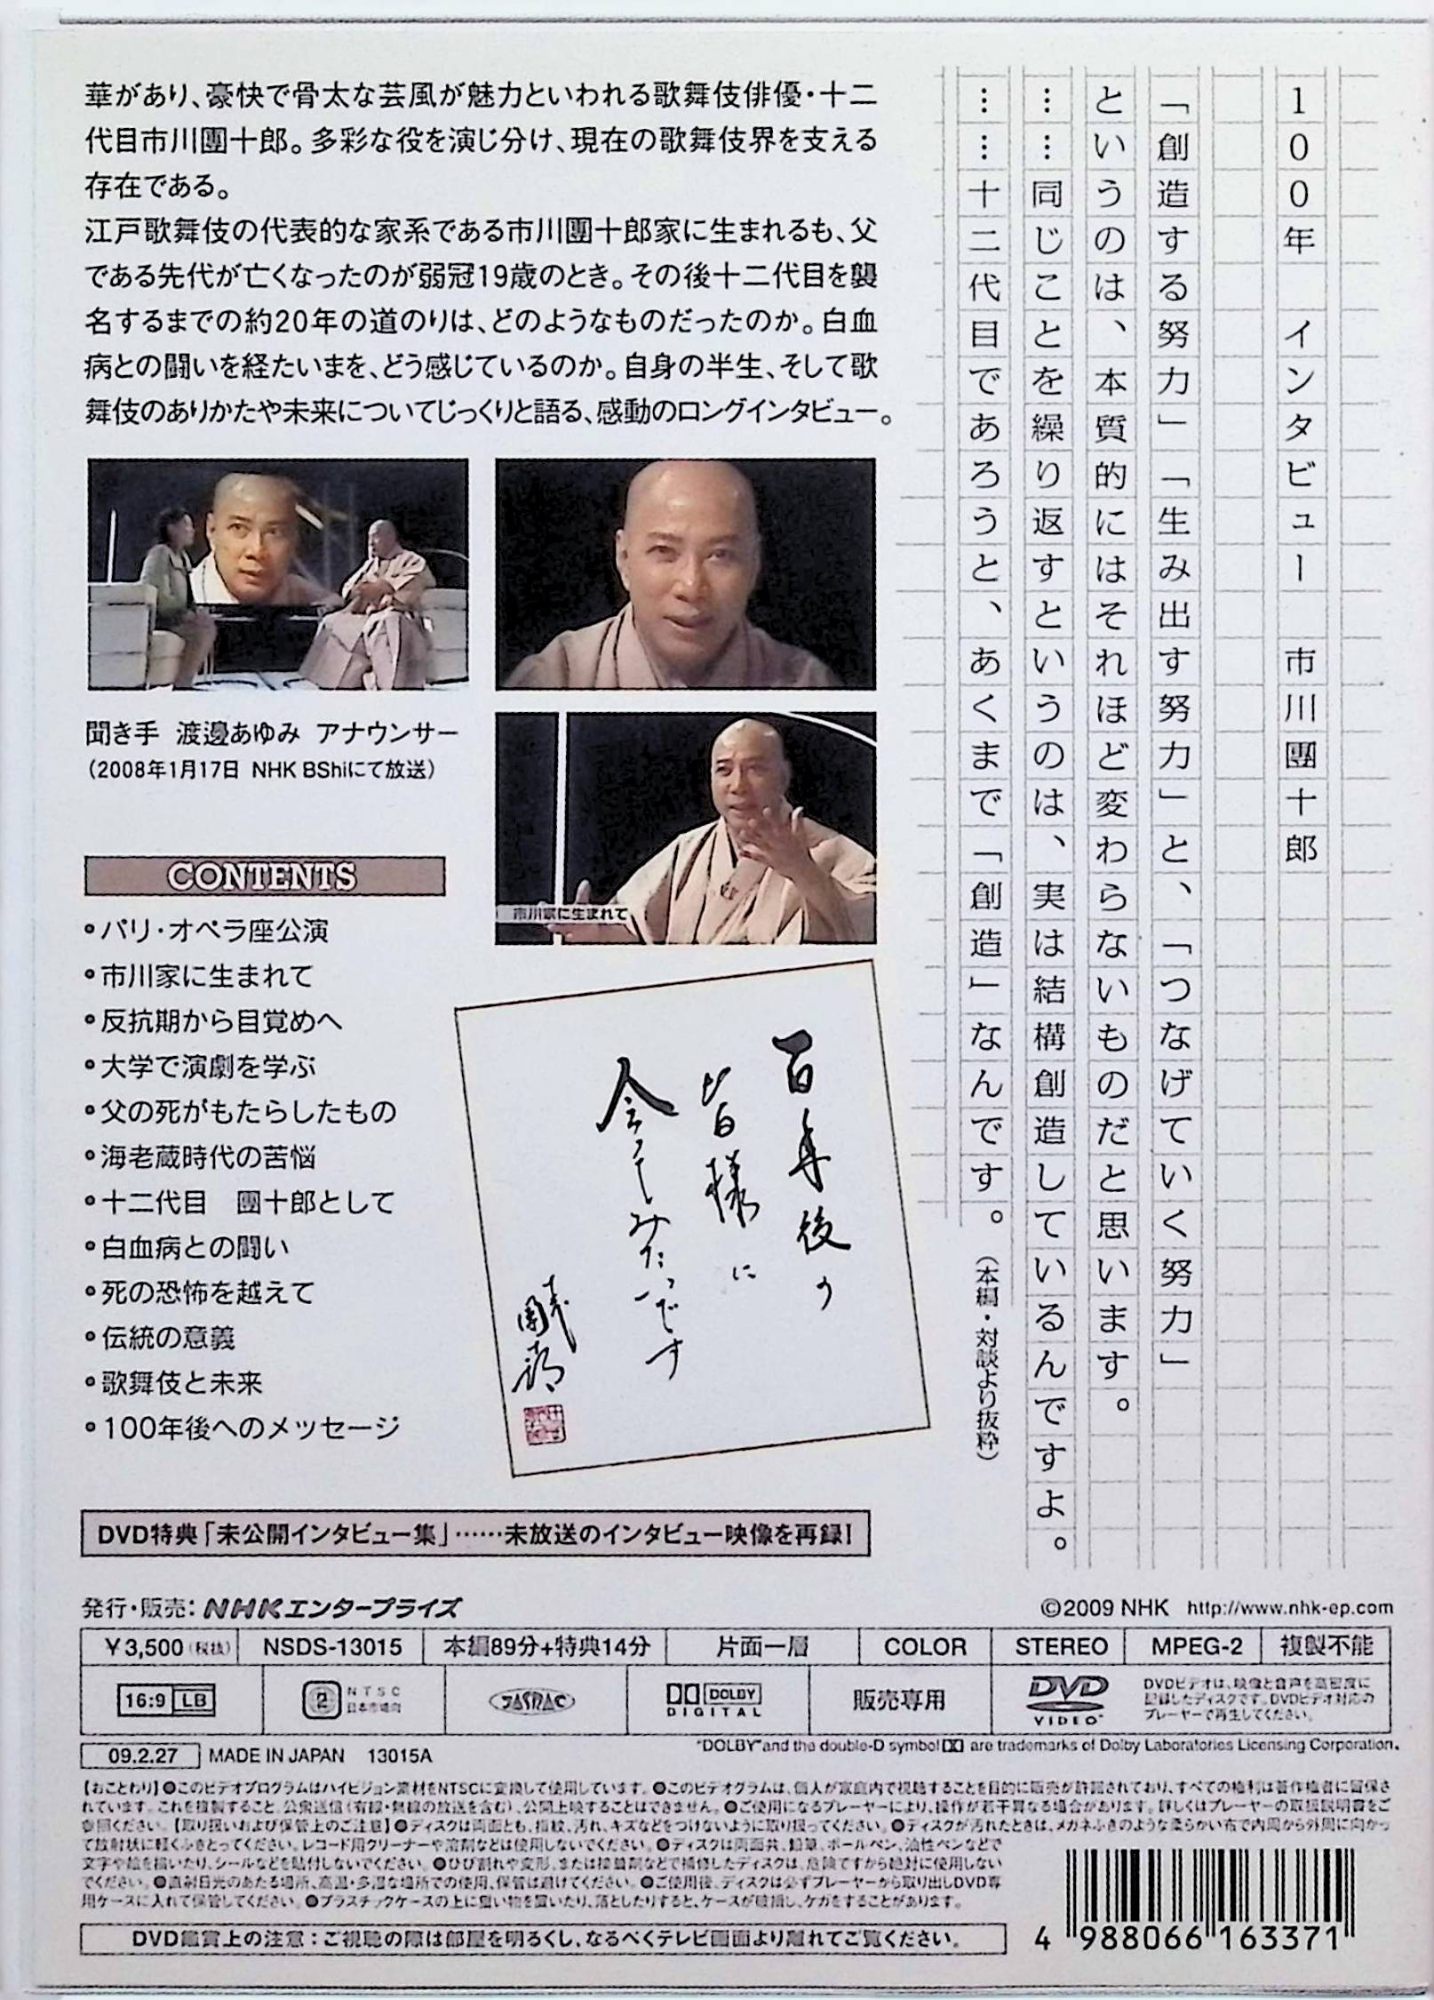 100年 インタビュー 市川團十郎
「創造する努力」「生み出す努力」と、「つなげていく努力」
というのは、本質的にはそれほど変わらないものだと思います。
……同じことを繰り返すというのは、実は結構創造しているんですよ。
……十二代目であろうと、あくまで「創造」なんです。(本編・対談より抜粋)
華があり、豪快で骨太な芸風が魅力といわれる歌舞伎俳優・十二
代目市川團十郎。多彩な役を演じ分け、現在の歌舞伎界を支える
存在である。
江戸歌舞伎の代表的な家系である市川團十郎家に生まれるも、父
である先代が亡くなったのが弱冠19歳のとき。その後十二代目を襲
名するまでの約20年の道のりは、どのようなものだったのか。白血
病との闘いを経たいまを、どう感じているのか。自身の半生、そして歌
舞伎のありかたや未来についてじっくりと語る、感動のロングインタビュー。
聞き手 渡邊あゆみ アナウンサー
(2008年1月17日 NHK BShiにて放送)
市川家に生まれて
CONTENTS
•パリ・オペラ座公演
•市川家に生まれて
•反抗期から目覚めへ
•大学で演劇を学ぶ
•父の死がもたらしたもの
•海老蔵時代の苦悩
•十二代目 團十郎として
•白血病との闘い
•死の恐怖を越えて
•伝統の意義
•歌舞伎と未来
•100年後へのメッセージ
百年後の
皆様に
会ってみたいです
DVD特典「未公開インタビュー集」……未放送のインタビュー映像を再録!
発行・販売:NHKエンタープライズ
©2009 NHK http://www.nhk-ep.com
¥3,500(税抜) NSDS-13015 本編89分+特典14分 片面一層 COLOR STEREO MPEG-2 複製不能
16:9 LB 2 NTSC 日本市場向 JASRAC DOLBY DIGITAL 販売専用 DVD VIDEO
DVDビデオは、映像と音声を高密度に
記録したディスクです。DVDビデオ対応の
プレーヤーで再生してください。
"DOLBY" and the double-D symbol are trademarks of Dolby Laboratories Licensing Corporation.
09.2.27 MADE IN JAPAN 13015A
【おことわり】●このビデオプログラムはハイビジョン素材をNTSCに変換して使用しています。●このビデオグラムは、個人が家庭内で視聴することを目的に販売が許諾されており、すべての権利は著作権者に留保さ
れています。これを複製すること、公衆送信(有線・無線の放送を含む)、公開上映することはできません。●ご使用になるプレーヤーにより、操作が若干異なる場合があります。詳しくはプレーヤーの取扱説明書をご
参照ください。【取り扱いおよび保管上のご注意】●ディスクは両面とも、指紋、汚れ、キズなどをつけないように取り扱ってください。●ディスクが汚れたときは、メガネふきのような柔らかい布で内周から外周に向かっ
て放射状に軽くふきとってください。レコード用クリーナーや溶剤などは使用しないでください。●ディスクは両面共、鉛筆、ボールペン、油性ペンなどで
文字や絵を描いたり、シールなどを貼付しないでください。●ひび割れや変形、または接着剤などで補修したディスクは、危険ですから絶対に使用しない
でください。●直射日光のあたる場所、高温・多湿な場所での使用、保管は避けてください。●ご使用後、ディスクは必ずプレーヤーから取り出しDVD専
用ケースに入れて保管してください。●プラスチックケースの上に重い物を置いたり、落としたりすると、ケースが破損し、ケガをすることがあります。
DVD鑑賞上の注意:ご視聴の際は部屋を明るくし、なるべくテレビ画面より離れてご覧ください。
4 988066 163371